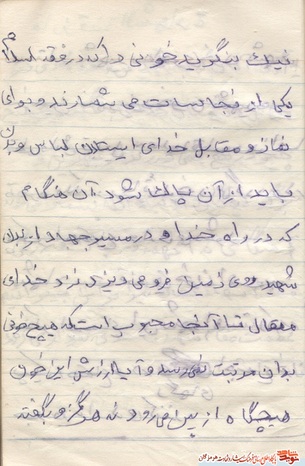 نیک بنگرید خونی که در فقه اسلام
یکی از نجاسات می شمارند و برای
نماز و مقابل خدای ایستادن لباس و بدن
باید از آن پاک شود آن هنگام
که در راه خدا و در مسیر جهاد از بدن
شهید روی زمین فرو می ریزد نزد خدای
متعال تا آنجا محبوب است که هیچ خونی
بدان مرتبت نمی رسد و آیا ارزش این خون
هیچگاه از بین می رود نه هرگز و بگفته